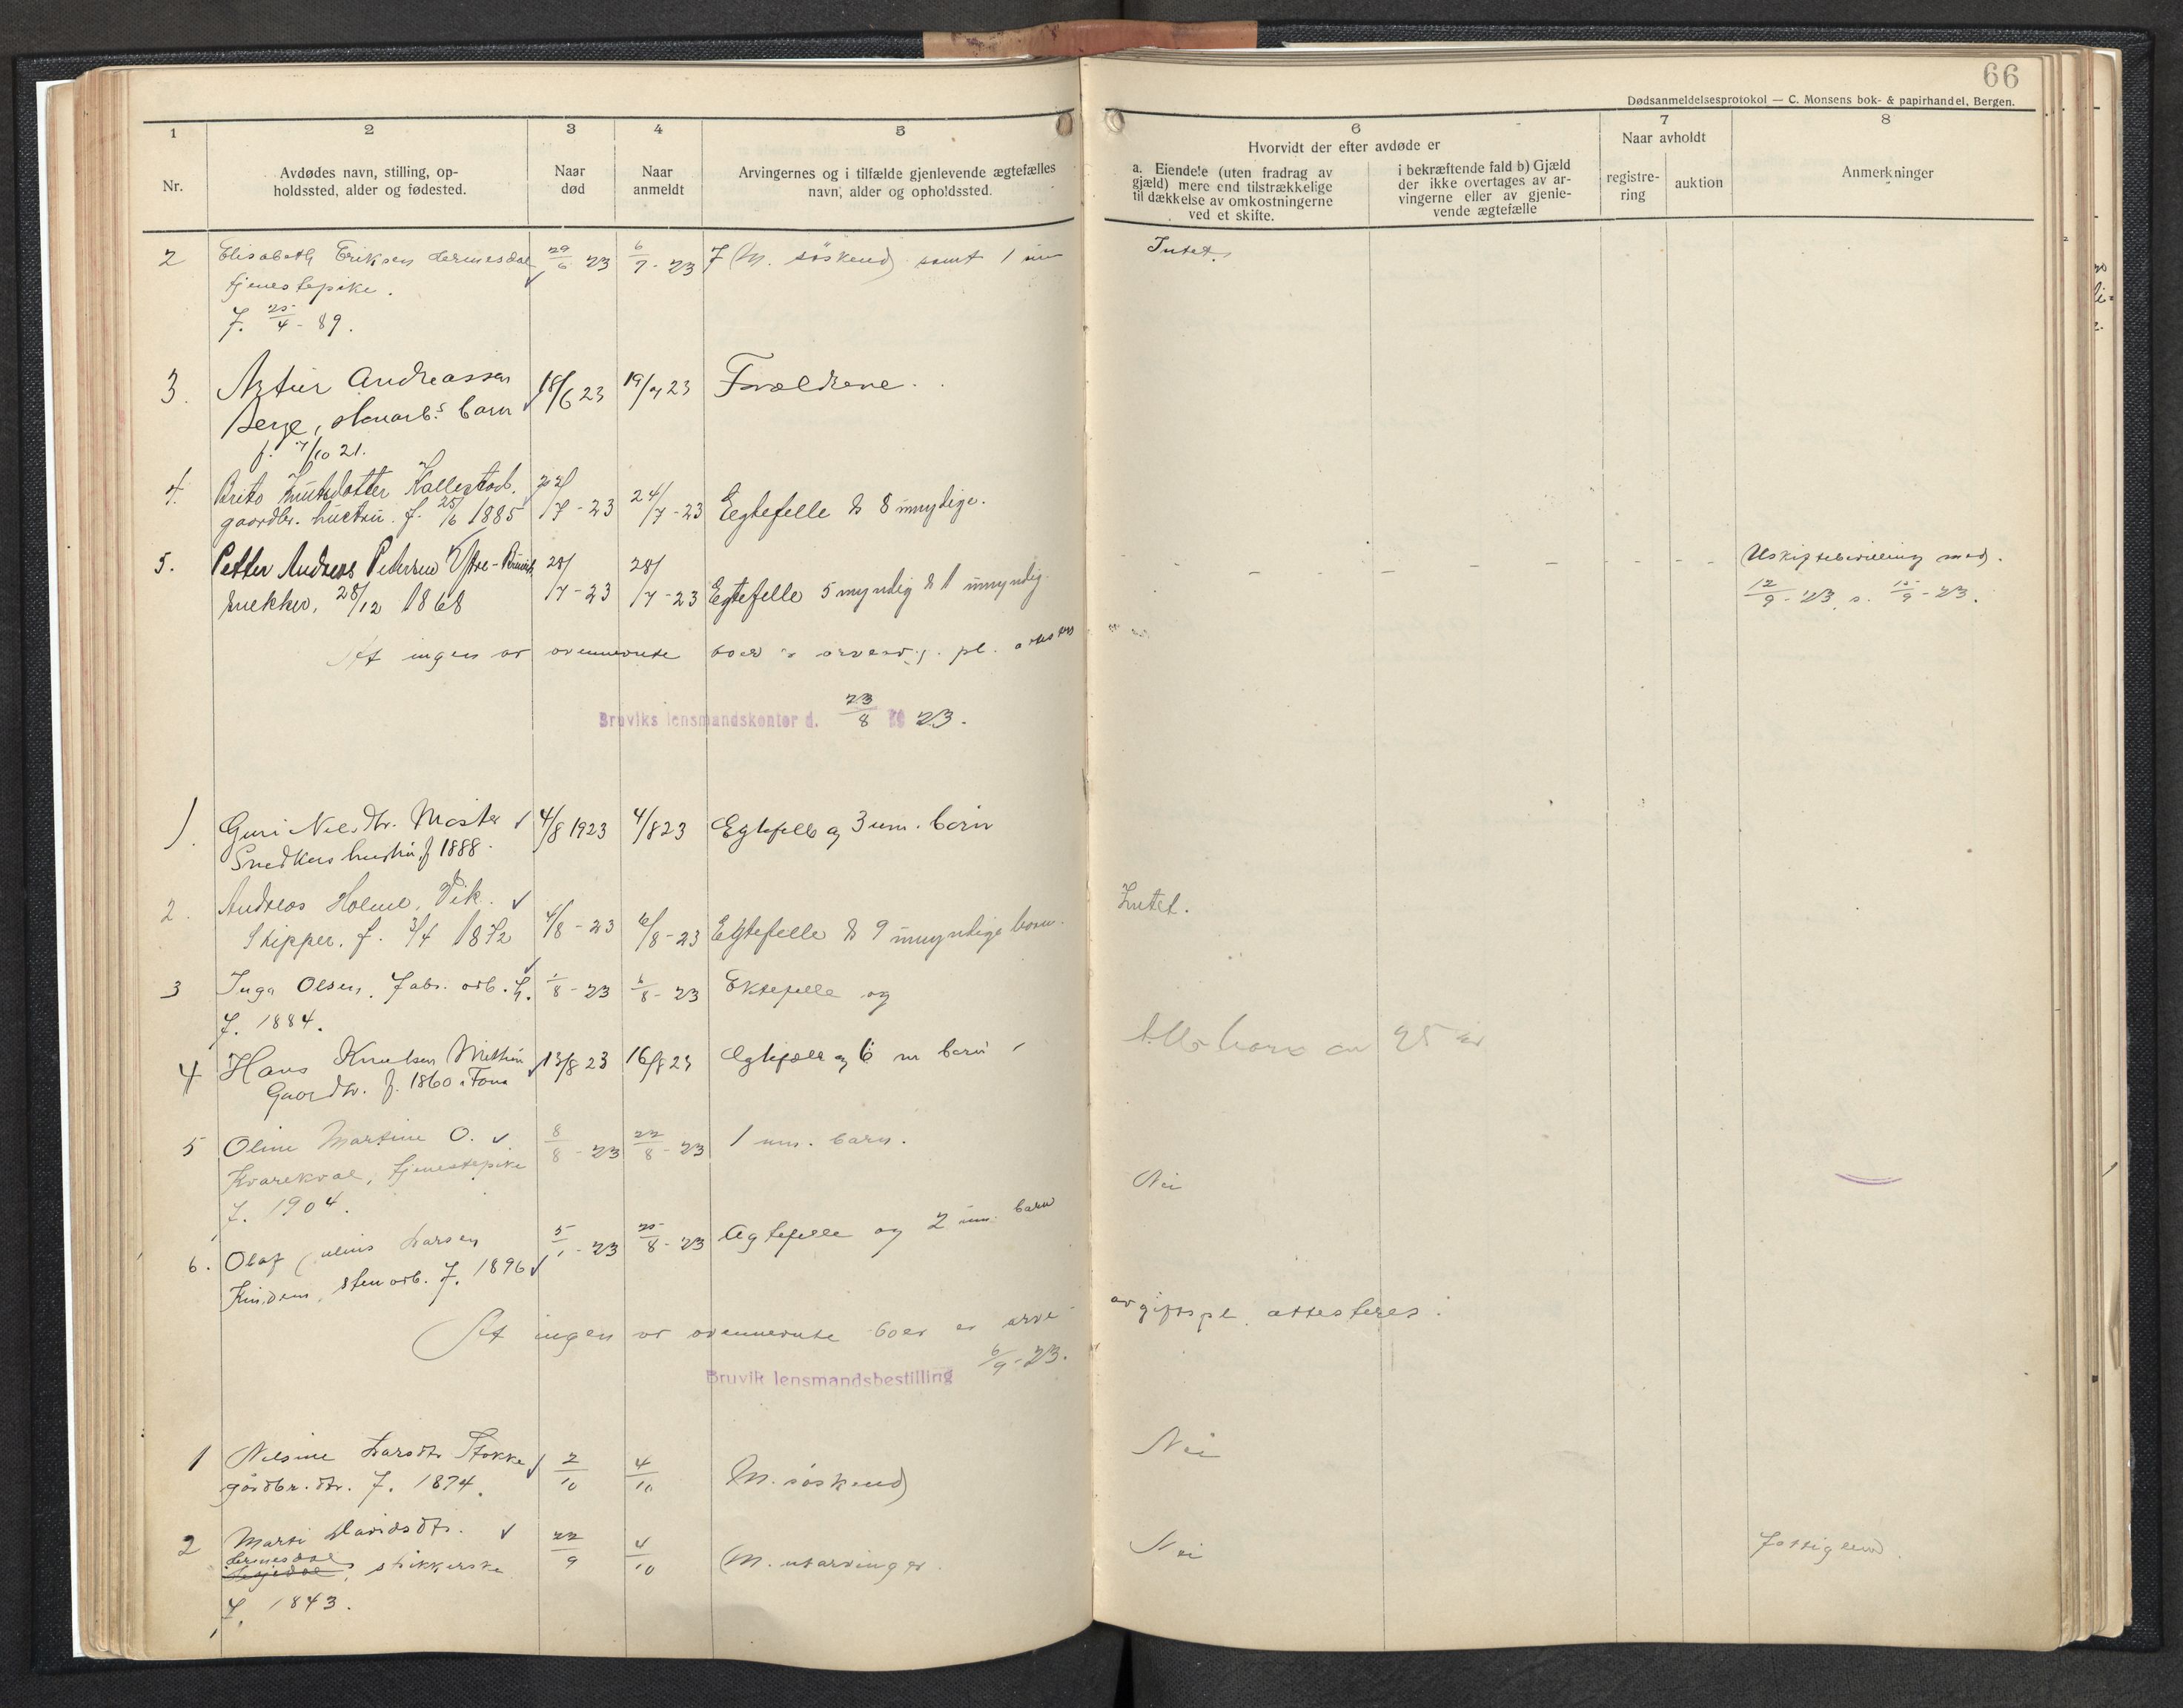 66
Dødsanmeldelsesprotokol — C. Monsens bok- & papirhandel, Bergen.
1
Nr.
2
Avdødes navn, stilling, op-
holdssted, alder og fødested.
3
Naar
død
4
Naar
anmeldt
5
Arvingernes og i tilfælde gjenlevende ægtefælles
navn, alder og opholdssted.
6
Hvorvidt der efter avdøde er
a. Eiendele (uten fradrag av
gjæld) mere end tilstrækkelige
til dækkelse av omkostningerne
ved et skifte.
i bekræftende fald b) Gjæld
der ikke overtages av ar-
vingerne eller av gjenle-
vende ægtefælle
7
Naar avholdt
registre-
ring
auktion
8
Anmerkninger
2 Elisabeth Eriksen 29/6 23 6/7-23 7 (M. søskend) samt 1 Intet.
tjenestepike.
F. 25/4-89.
3. Artur Andreassen 18/6 23 19/7 23 Forældrene.
Berge, stenarb.s barn
f. 7/10 21.
4. Brita Knutsdotter Kallestad. 22/7-23 24/7-23 Egtefelle & 8 umyndige.
gaardbr. hustru. f. 25/6 1885
5. Petter Andreas Petersen 28/7-23 28/7-23 Egtefelle 5 myndig & 1 umyndig. Uskiftebevilling med.
snekker, 28/12 1868 12/9-23. s. 15/9-23.
At ingen av ovennevnte boer er
Bruviks lensmandskontor d. 23/8 19 23.
1. Guri Nilsdtr. Moster 4/8 1923 4/8 23 Egtefelle og 3 um. børn
Snedkers hustru f 1888.
2. Andreas Holme, Vik. 4/8-23 6/8-23 Egtefelle & 9 umyndige born. Intet.
Skipper. f. 3/4 1872
3 Inga Olsen. Fabr. arb. h. 1/8-23 6/8-23 Ektefelle og
F. 1884.
4 Hans Knutsen 13/8 23 16/8 23 Egtefælle og 6 m børn Alle born over 25 år
Gaardbr. f. 1860 i Fana
5 Oline Martine O. 8/8-23 22/8-23 1 um. barn.
Kvarekval, tjenestepike Nei
F. 1904.
6. Olaf Julius Larsen 5/1-23 25/8-23 Egtefelle og 2 um. barn
Kindem, stenarb. F. 1896
At ingen av ovennevnte boer er arve avgiftspl. attesteres.
6/9-23.
Bruvik lensmandsbestilling
1 Nilsine Larsdtr Stokke 2/10 4/10 M. søskend) Nei
gårdbr. dtr. F. 1874.
2 Marti Davidsdtr. 22/9 4/10 (M. utarvinger. Nei Fattiglem.
strikkerske
F. 1843.